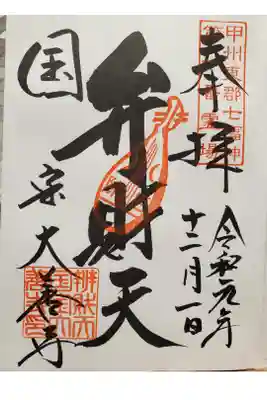 甲州東郡七福神
奉拝
令和元年
十二月一日
弁財天
国宝大善寺